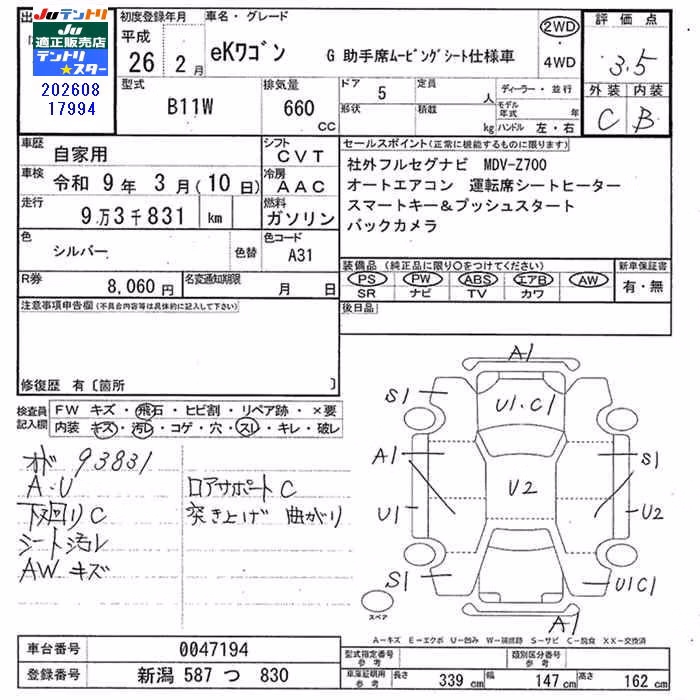 出
JUテントリ
JU
適正販売店
テントリ
★スター
202608
17994
初度登録年月
平成
26 2月
車名・グレード
eKワゴン G 助手席ムービングシート仕様車
2WD
4WD
評価点
3.5
外装 内装
C B
型式
B11W
排気量
660
CC
ドア
5
形状
定員
人
積載
kg
ディーラー・並行
モデル年式 年
ハンドル 左・右
車歴
自家用
シフト
CVT
車検
令和 9年 3月(10日)
冷房
AAC
走行
9万3千831 km
燃料
ガソリン
色
シルバー
色替
色コード
A31
R券
8,060円
名変通知期限
月 日
セールスポイント(正常に機能するものに限ります)
社外フルセグナビ MDV-Z700
オートエアコン 運転席シートヒーター
スマートキー&プッシュスタート
バックカメラ
装備品(純正品に限り○をつけてください)
PS PW ABS エアB AW
SR ナビ TV カワ
新車保証書
有・無
後日品
注意事項申告欄(不具合内容等は具体的に記入して下さい)
修復歴 有〔箇所 〕
検査員
記入欄
FW キズ・飛石・ヒビ割・リペア跡・×要
内装 キズ・汚レ・コゲ・穴・スレ・キレ・破レ
オド 93831
A・U
下廻りC
シート汚レ
AW キズ
ロアサポートC
突き上げ 曲がり
A1
S1
U1.C1
S1
A1
S1
U2
U1
U2
S1
U1C1
A1
スペア
A-キズ E-エクボ U-凹み W-補修跡 S-サビ C-腐食 XX-交換済
車台番号
0047194
登録番号
新潟 587 つ 830
型式指定番号
参考
類別区分番号
参考
車庫証明用
参考
長さ 339 cm 幅 147 cm 高さ 162 cm